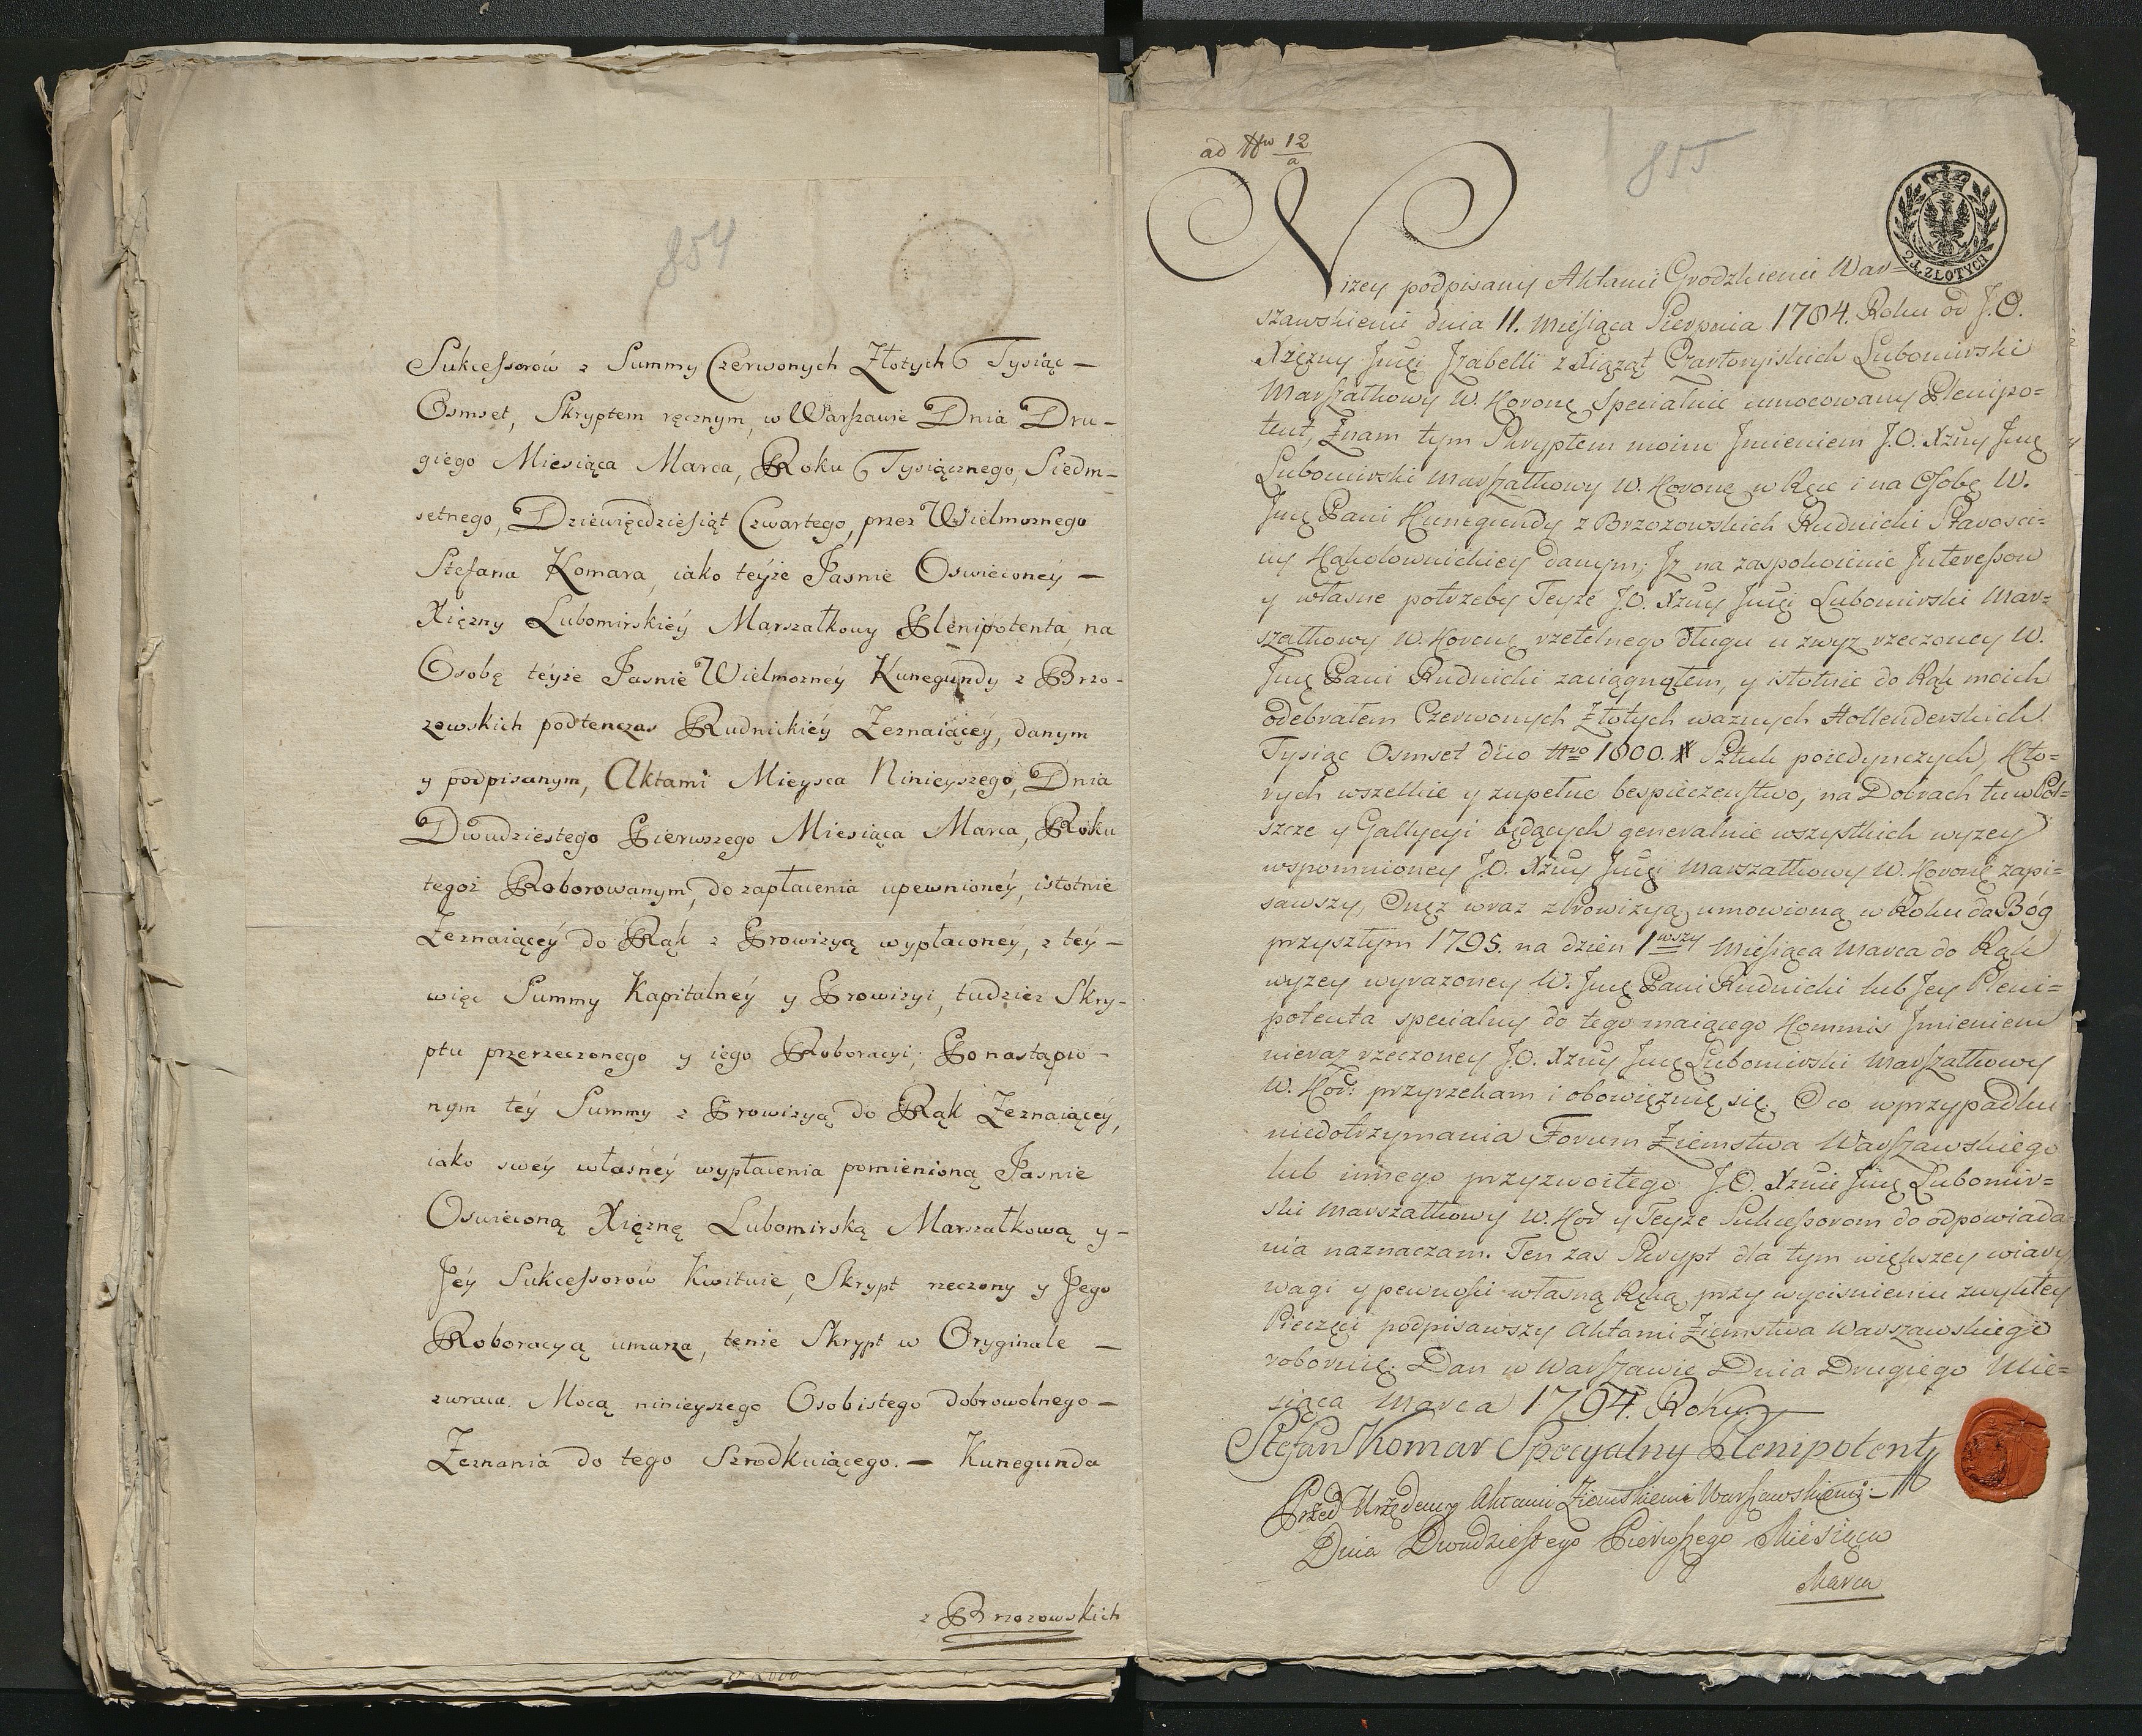 854
Sukcessorów z Summy Czerwonych Złotych Tysiąc —
Osmset, Skryptem ręcznym, w Warszawie Dnia Dru-
giego Miesiąca Marca, Roku Tysiącznego, Siedm-
setnego, Dziewięćdziesiąt Czwartego, przez Wielmożnego
Stefana Komara, iako teyże Jasnie Oswieconey —
Xiężny Lubomirskiéy Marszałkowy Plenipotenta, na
Osobę téyże Jasnie Wielmozney Kunegundy z Brzo-
zowskich podtenczas Rudnickiéy Zeznaiącéy, danym
y podpisanym, Aktami Mieysca Ninieyszego, Dnia
Dwudziestego Pierwszego Miesiąca Marca, Roku
tegoż Roborowanym, do zapłacenia upewnionéy, istotnie
Zeznaiącéy do Rąk z Prowizyą wypłaconéy, z téy —
więc Summy Kapitalnéy y Prowizyi, tudzież Skry-
ptu przerzeczonego y iego Roboracyi; Po nastąpio-
nym téy Summy z Prowizyą do Rąk Zeznaiącéy,
iako swéy własnéy wypłacenia pomienioną Jasnie
Oswieconą Xiężnę Lubomirską Marszałkową y —
Jéy Sukcessorów Kwituie, Skrypt rzeczony y Jego
Roboracyą umarza, tenże Skrypt w Oryginale —
zwraca. Mocą ninieyszego Osobistego dobrowolnego —
Zeznania do tego Szrodkuiącego. — Kunegunda
z Brzozowskich
ad Nrw 12/a
855
2 ZŁOTYCH
Nizey podpisany Aktami Grodzkiemi War=
szawskiemi dnia 11. Miesiąca Sierpnia 1784. Roku od J.O.
Xzężny Jmci Jzabelli z Xiążąt Czartoryiskich Lubomirski
Marszałkowy W. Koronę Specialnie umocowany Plenipo=
tent, Znam tym Skryptem moim Jmieniem J.O. Xzny Jmę
Lubomirski Marszałkowy W. Koronę w Ręce i na Osobę W.
Jmę Pani Kunegundy z Brzozowskich Rudnicki Starosci=
ny Kąkolownickiey danym; Jz na zaspokoienie Interessow
y własne potrzeby Teyże J.O. Xzny Jmci Lubomirski Mar=
szałkowy W. Koronę rzetelnego długu u zwyz rzeczoney W.
Jmę Pani Rudnicki zaciągnąłem, y istotnie do Rąk moich
odebrałem Czerwonych Złotych waznych Hollenderskich
Tysiąc Osmset dico Nro 1800. # Sztuk poiedynczych, Kto=
rych wszelkie y zupełne bespieczenstwo, na Dobrach tu w Pol=
szcze y Gallycyi będących generalnie wszystkich wyzey
wspomnioney J.O. Xzny Jmci Marszałkowy W. Koronę zapi=
sawszy, Onęż wraz z Prowizyą umowioną w Roku da Bóg
przyszłym 1795. na dzień 1wszy Miesiąca Marca do Rąk
wyzey wyrazoney W. Jmę Pani Rudnicki lub Jey Pleni=
potenta specialny do tego maiącego Kommis Jmieniem
nieraz rzeczoney J.O. Xzny Jmę Lubomirski Marszałkowy
W. Kor: przyrzekam i obowięzuię się. O co w przypadku
niedotrzymania Forum Ziemstwa Warszawskiego
lub innego przyzwoitego J.O. Xznie Jmę Lubomir=
ski Marszałkowy W. Kor y Teyże Sukcessorom do odpowiada=
nia naznaczam. Ten zas Skrypt dla tym większey wiary
wagi y pewnosci własną Ręką przy wycisnieniu zwykłey
Pieczęci podpisawszy Aktami Ziemstwa Warszawskiego
roboruię. Dan w Warszawie Dnia Drugiego Mie=
siąca Marca 1794. Roku.
Stefan Komar Specyalny Plenipotent
Przed Urzędem y Aktami Ziemskiemi Warszawskiemi.
Dnia Dwudziestego Pierwszego Miesiąca
Marca